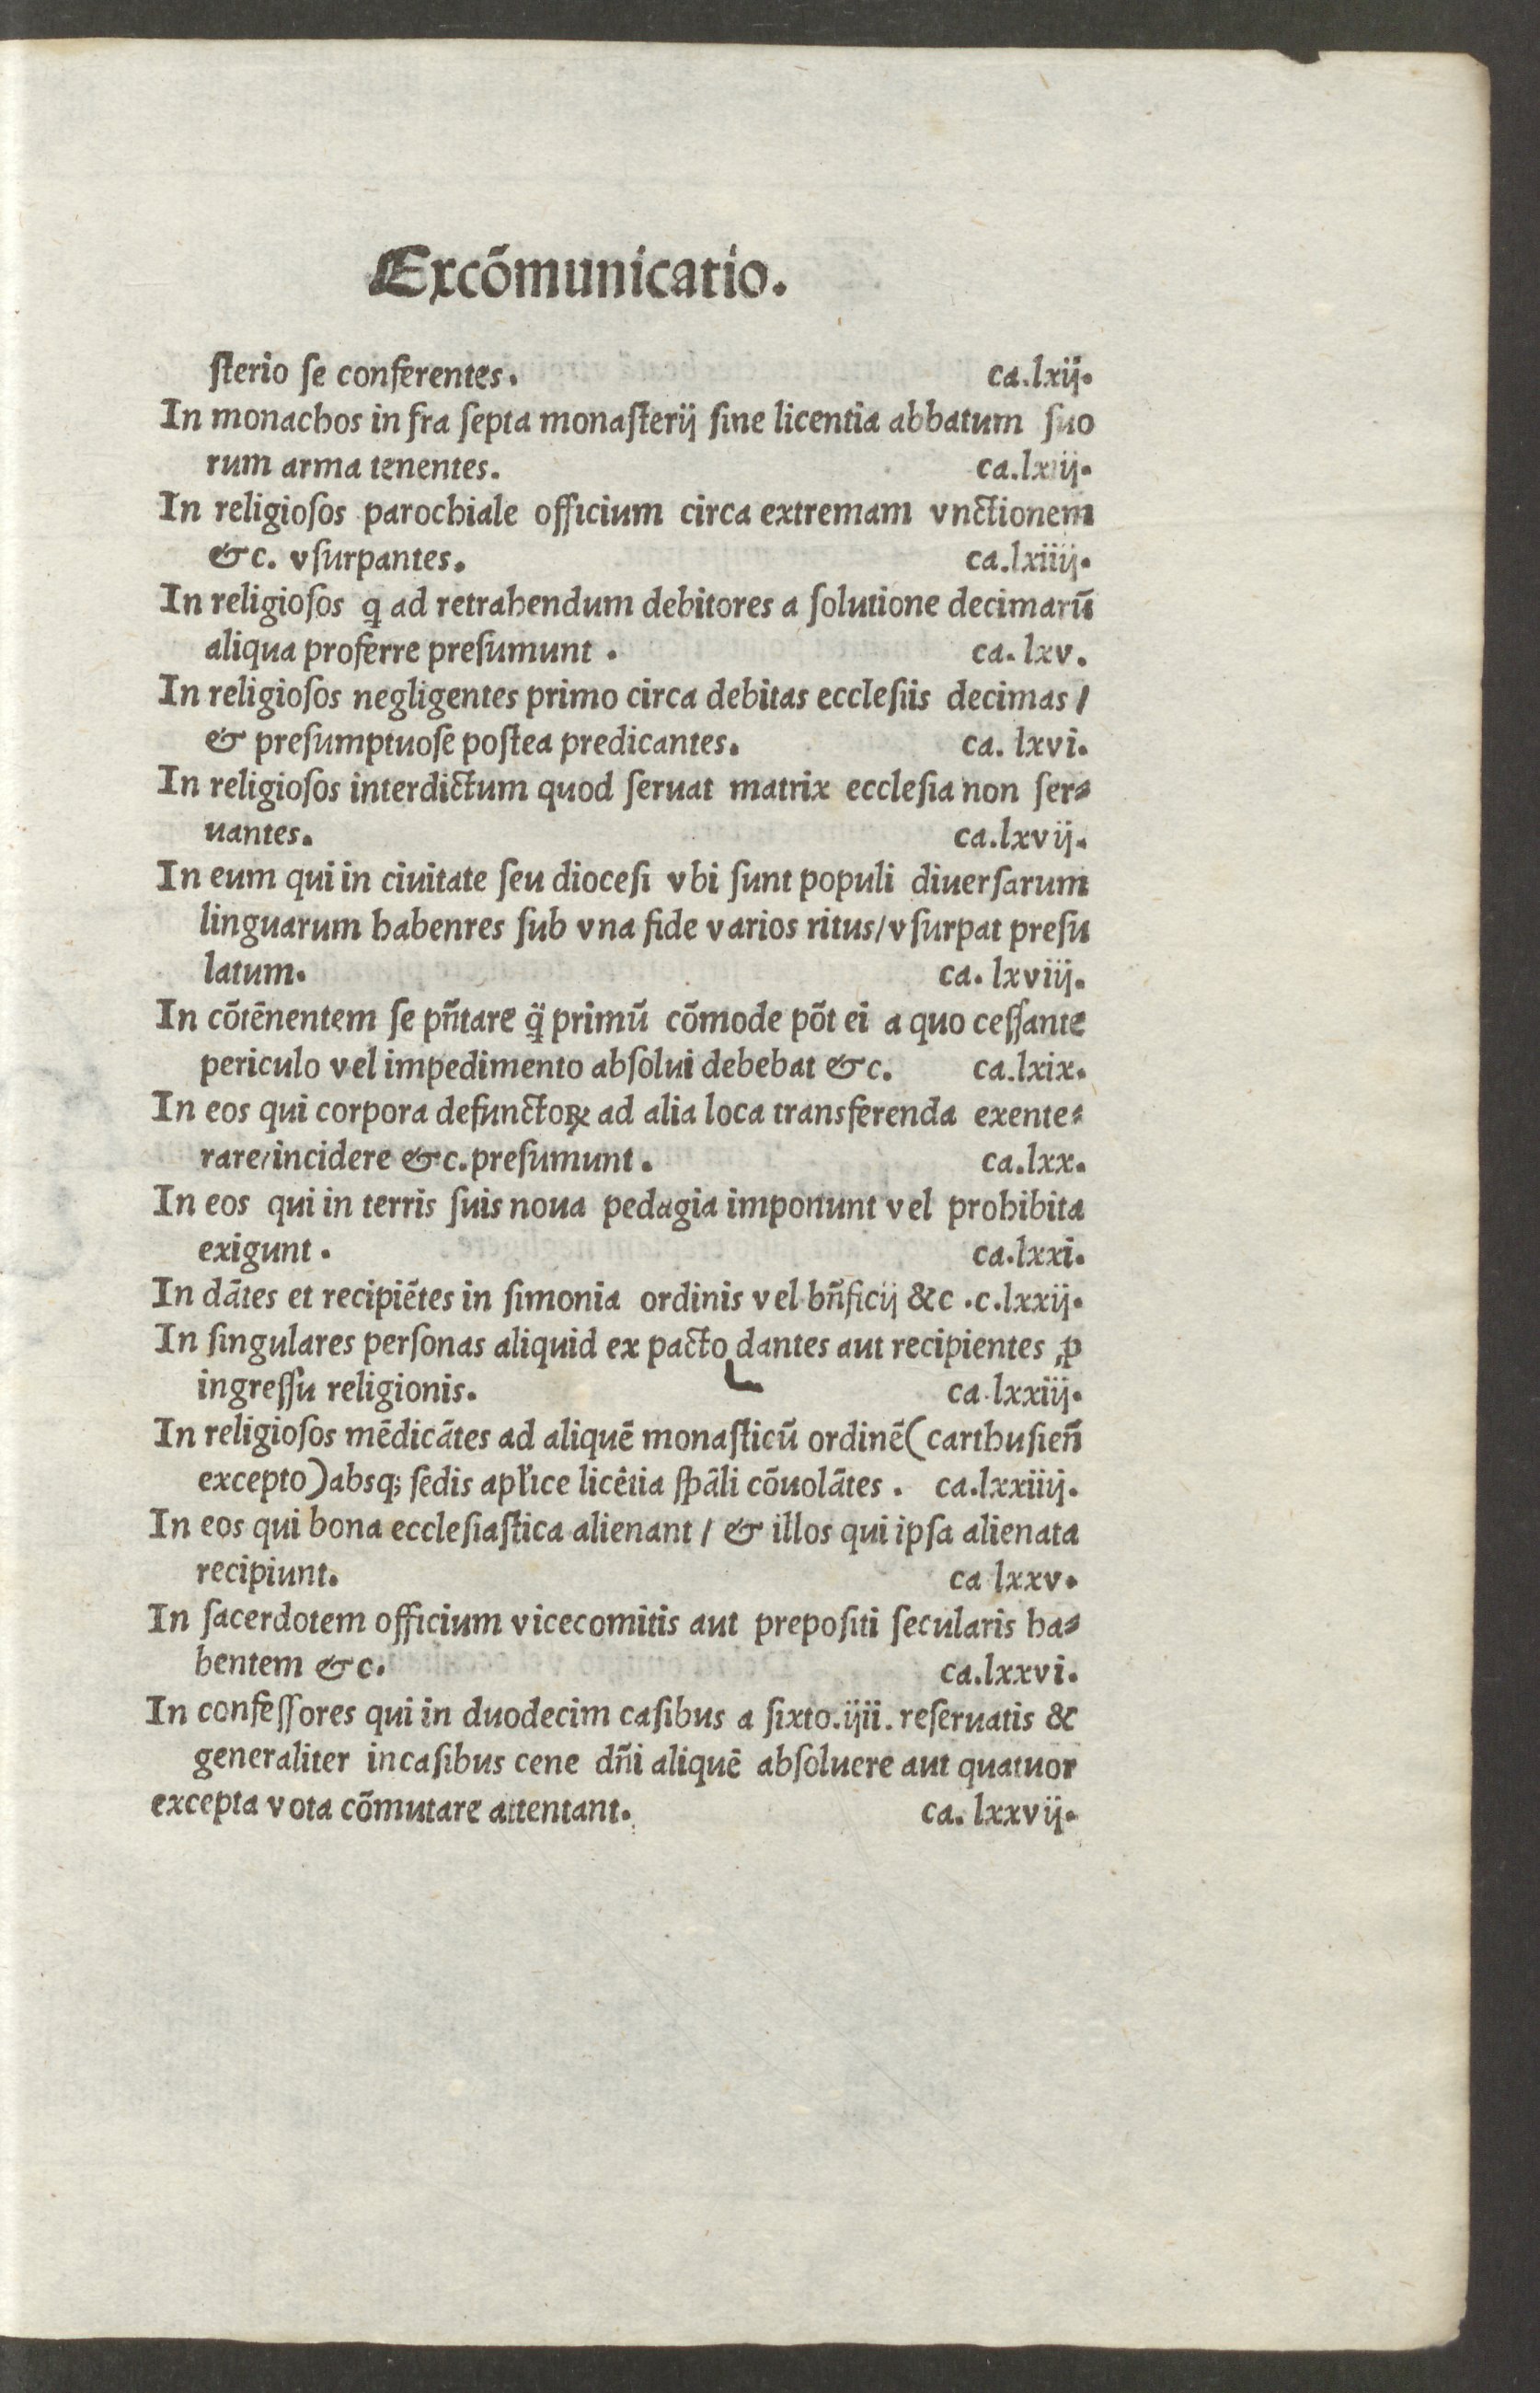 Excõmunicatio.
ſterio ſe conferentes. ca.lxij.
In monachos in fra ſepta monaſterij ſine licentia abbatum ſuo
rum arma tenentes. ca.lxiij.
In religioſos parochiale officium circa extremam vnctionem
&c. vſurpantes. ca.lxiiij.
In religioſos q̃ ad retrahendum debitores a ſolutione decimarũ
aliqua proferre preſumunt . ca. lxv.
In religioſos negligentes primo circa debitas eccleſiis decimas /
& preſumptuoſe poſtea predicantes. ca. lxvi.
In religioſos interdictum quod ſeruat matrix eccleſia non ſer⸗
uantes. ca.lxvij.
In eum qui in ciuitate ſeu dioceſi vbi ſunt populi diuerſarum
linguarum habenres ſub vna fide varios ritus/vſurpat preſu
latum. ca. lxviij.
In cõtẽnentem ſe pñtare q̃ primũ cõmode põt ei a quo ceſſante
periculo vel impedimento abſolui debebat &c. ca.lxix.
In eos qui corpora defunctoꝝ ad alia loca transferenda exente⸗
rare/incidere &c.preſumunt. ca.lxx.
In eos qui in terris ſuis noua pedagia imponunt vel prohibita
exigunt . ca.lxxi.
In dãtes et recipiẽtes in ſimonia ordinis vel bñficij &c .c.lxxij.
In ſingulares perſonas aliquid ex pacto dantes aut recipientes ꝓ
ingreſſu religionis. ca.lxxiij.
In religioſos mẽdicãtes ad aliquẽ monaſticũ ordinẽ(carthuſieñ
excepto)abſq; ſedis apl'ice licẽtia ſpãli cõuolãtes . ca.lxxiiij.
In eos qui bona eccleſiaſtica alienant / & illos qui ipſa alienata
recipiunt. ca lxxv.
In ſacerdotem officium vicecomitis aut prepoſiti ſecularis ha⸗
bentem &c. ca.lxxvi.
In confeſſores qui in duodecim caſibus a ſixto.ijii. reſeruatis &
generaliter incaſibus cene dñi aliquẽ abſoluere aut quatuor
excepta vota cõmutare attentant. ca. lxxvij.